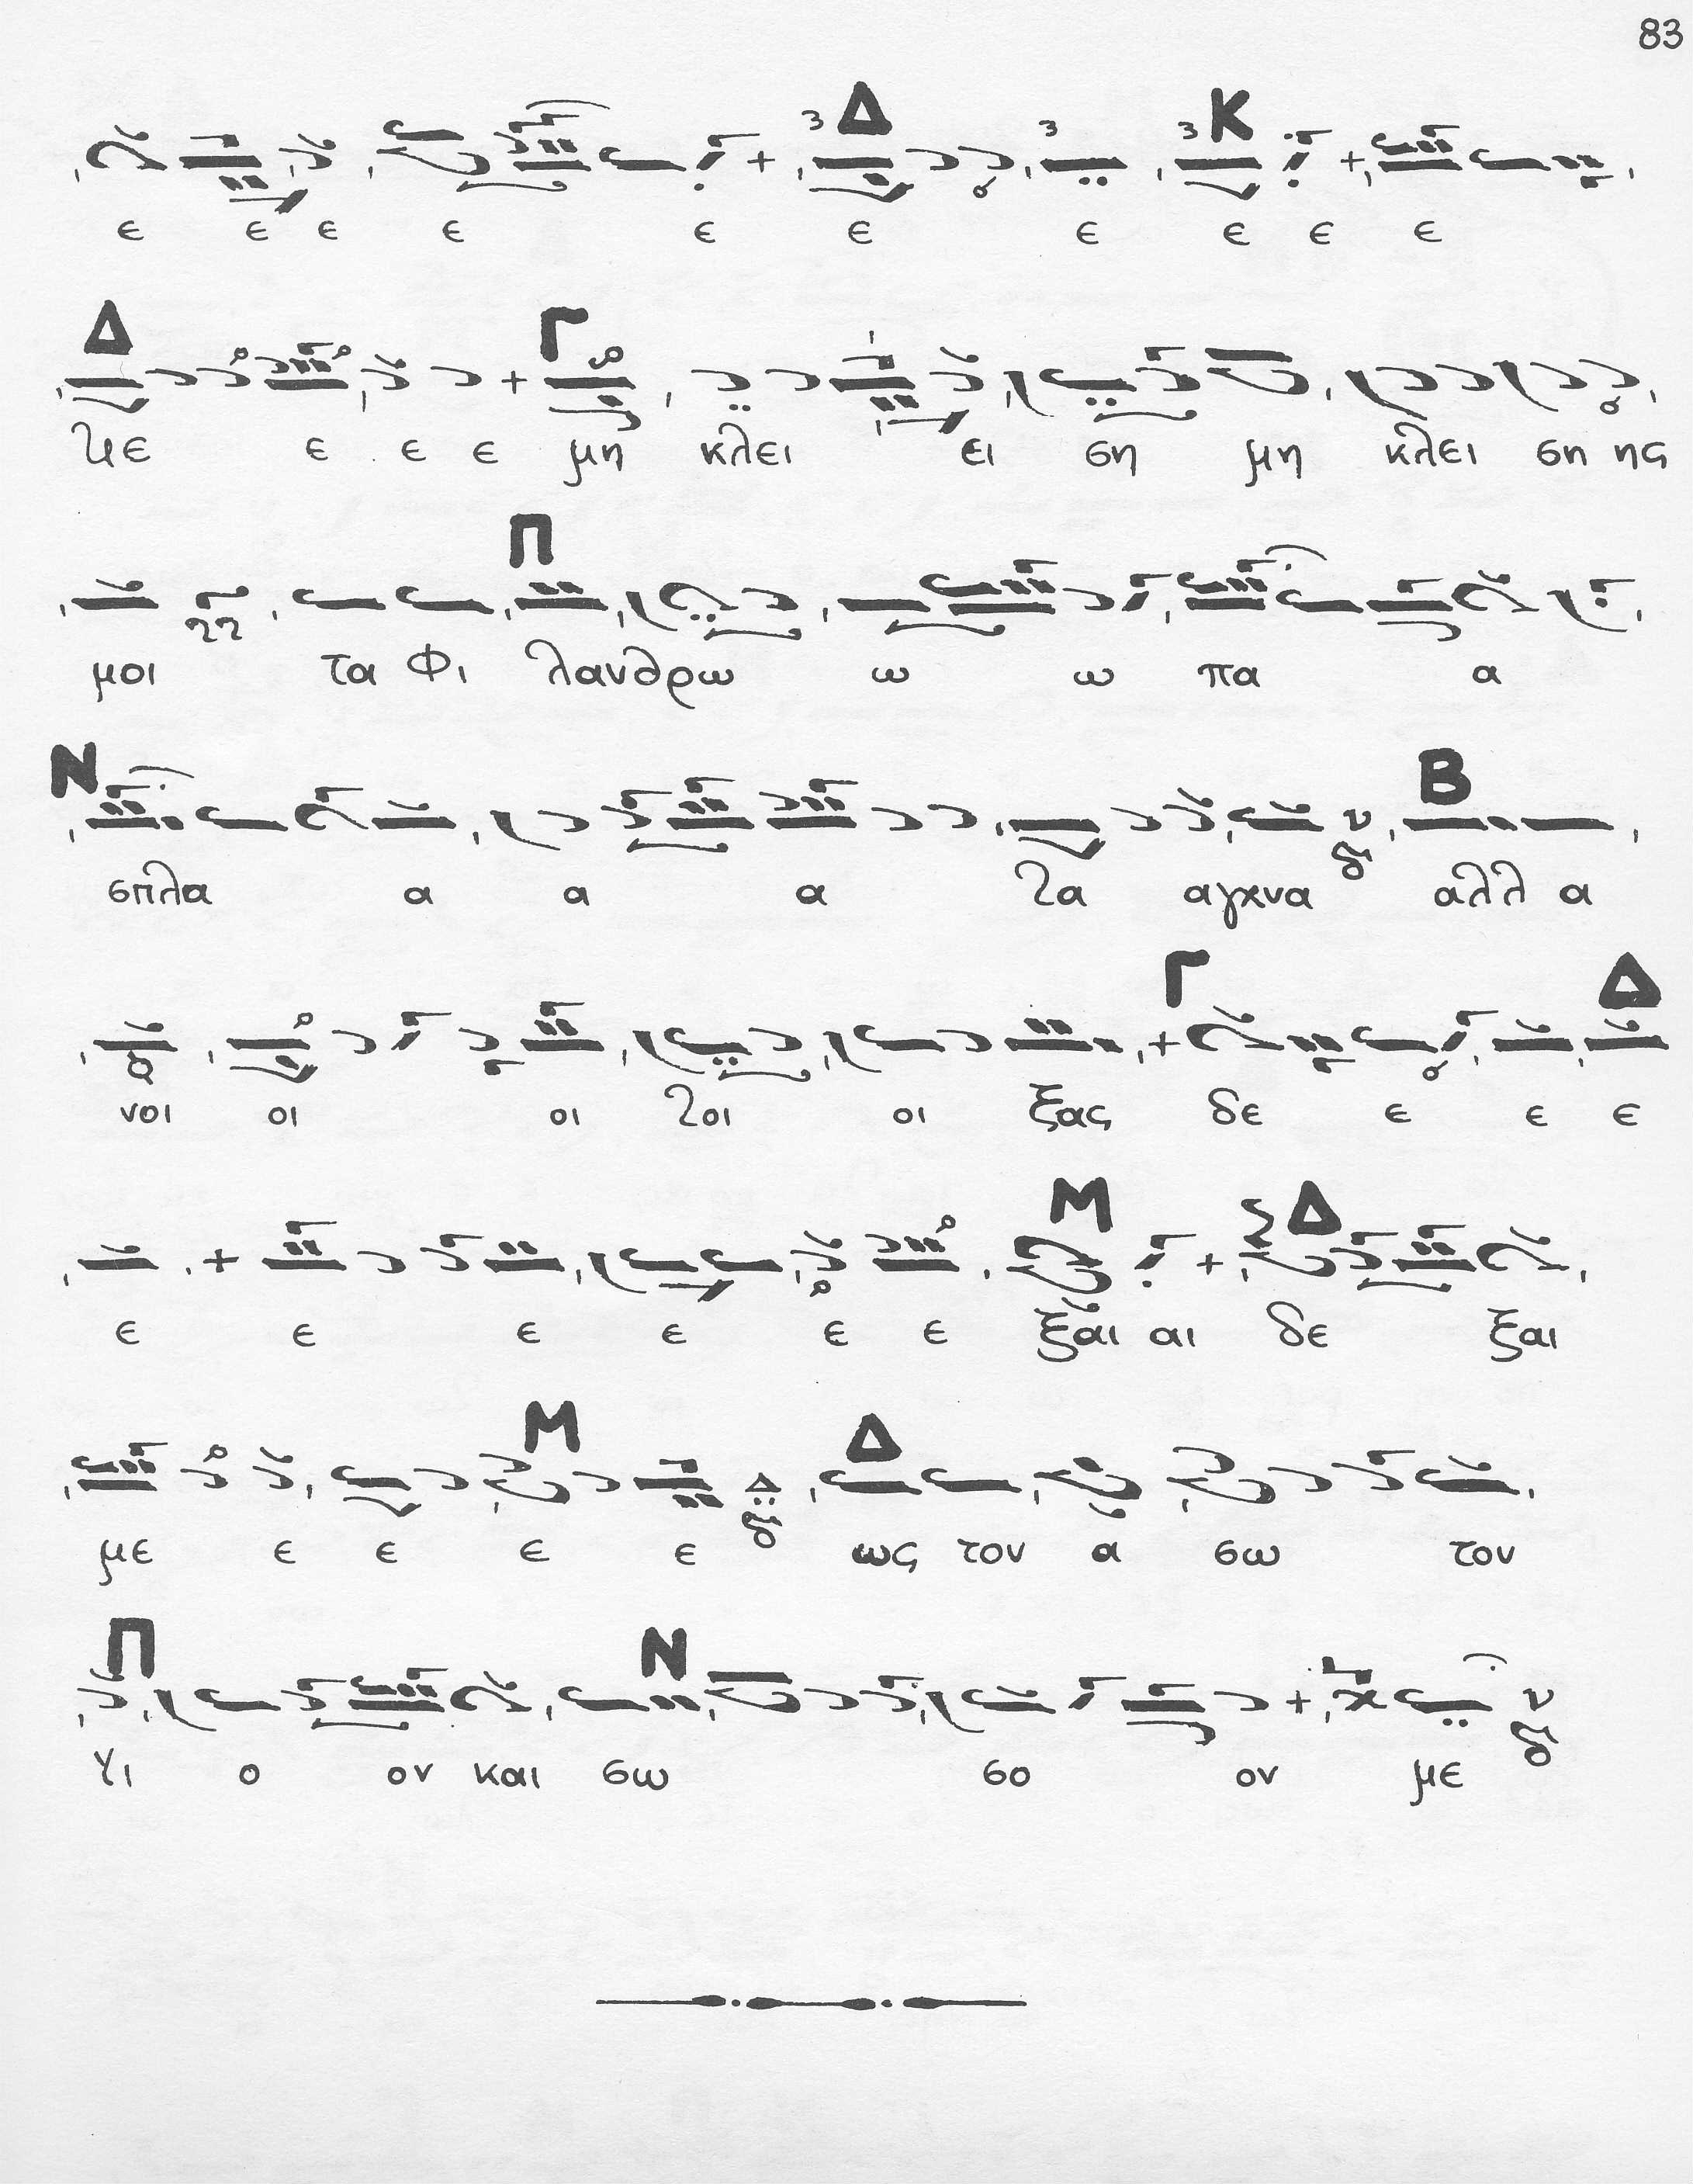 83
3 Δ 3 3 K
ε ε ε ε ε ε ε ε ε ε
Δ Γ
χε ε ε ε μη κλει ει ση μη κλει ση ης
Π
μοι τα Φι λανθρω ω ω πα α
Ν
Β
σπλα α α α χα αγχνα αλλ α
Γ Δ
νοι οι οι χοι οι ξας δε ε ε ε
Μ Δ
ε ε ε ε ε ε ξαι αι δε ξαι
Μ Δ
με ε ε ε ε ως τον α σω τον
Π Ν
Υι ο ον και σω σο ον με